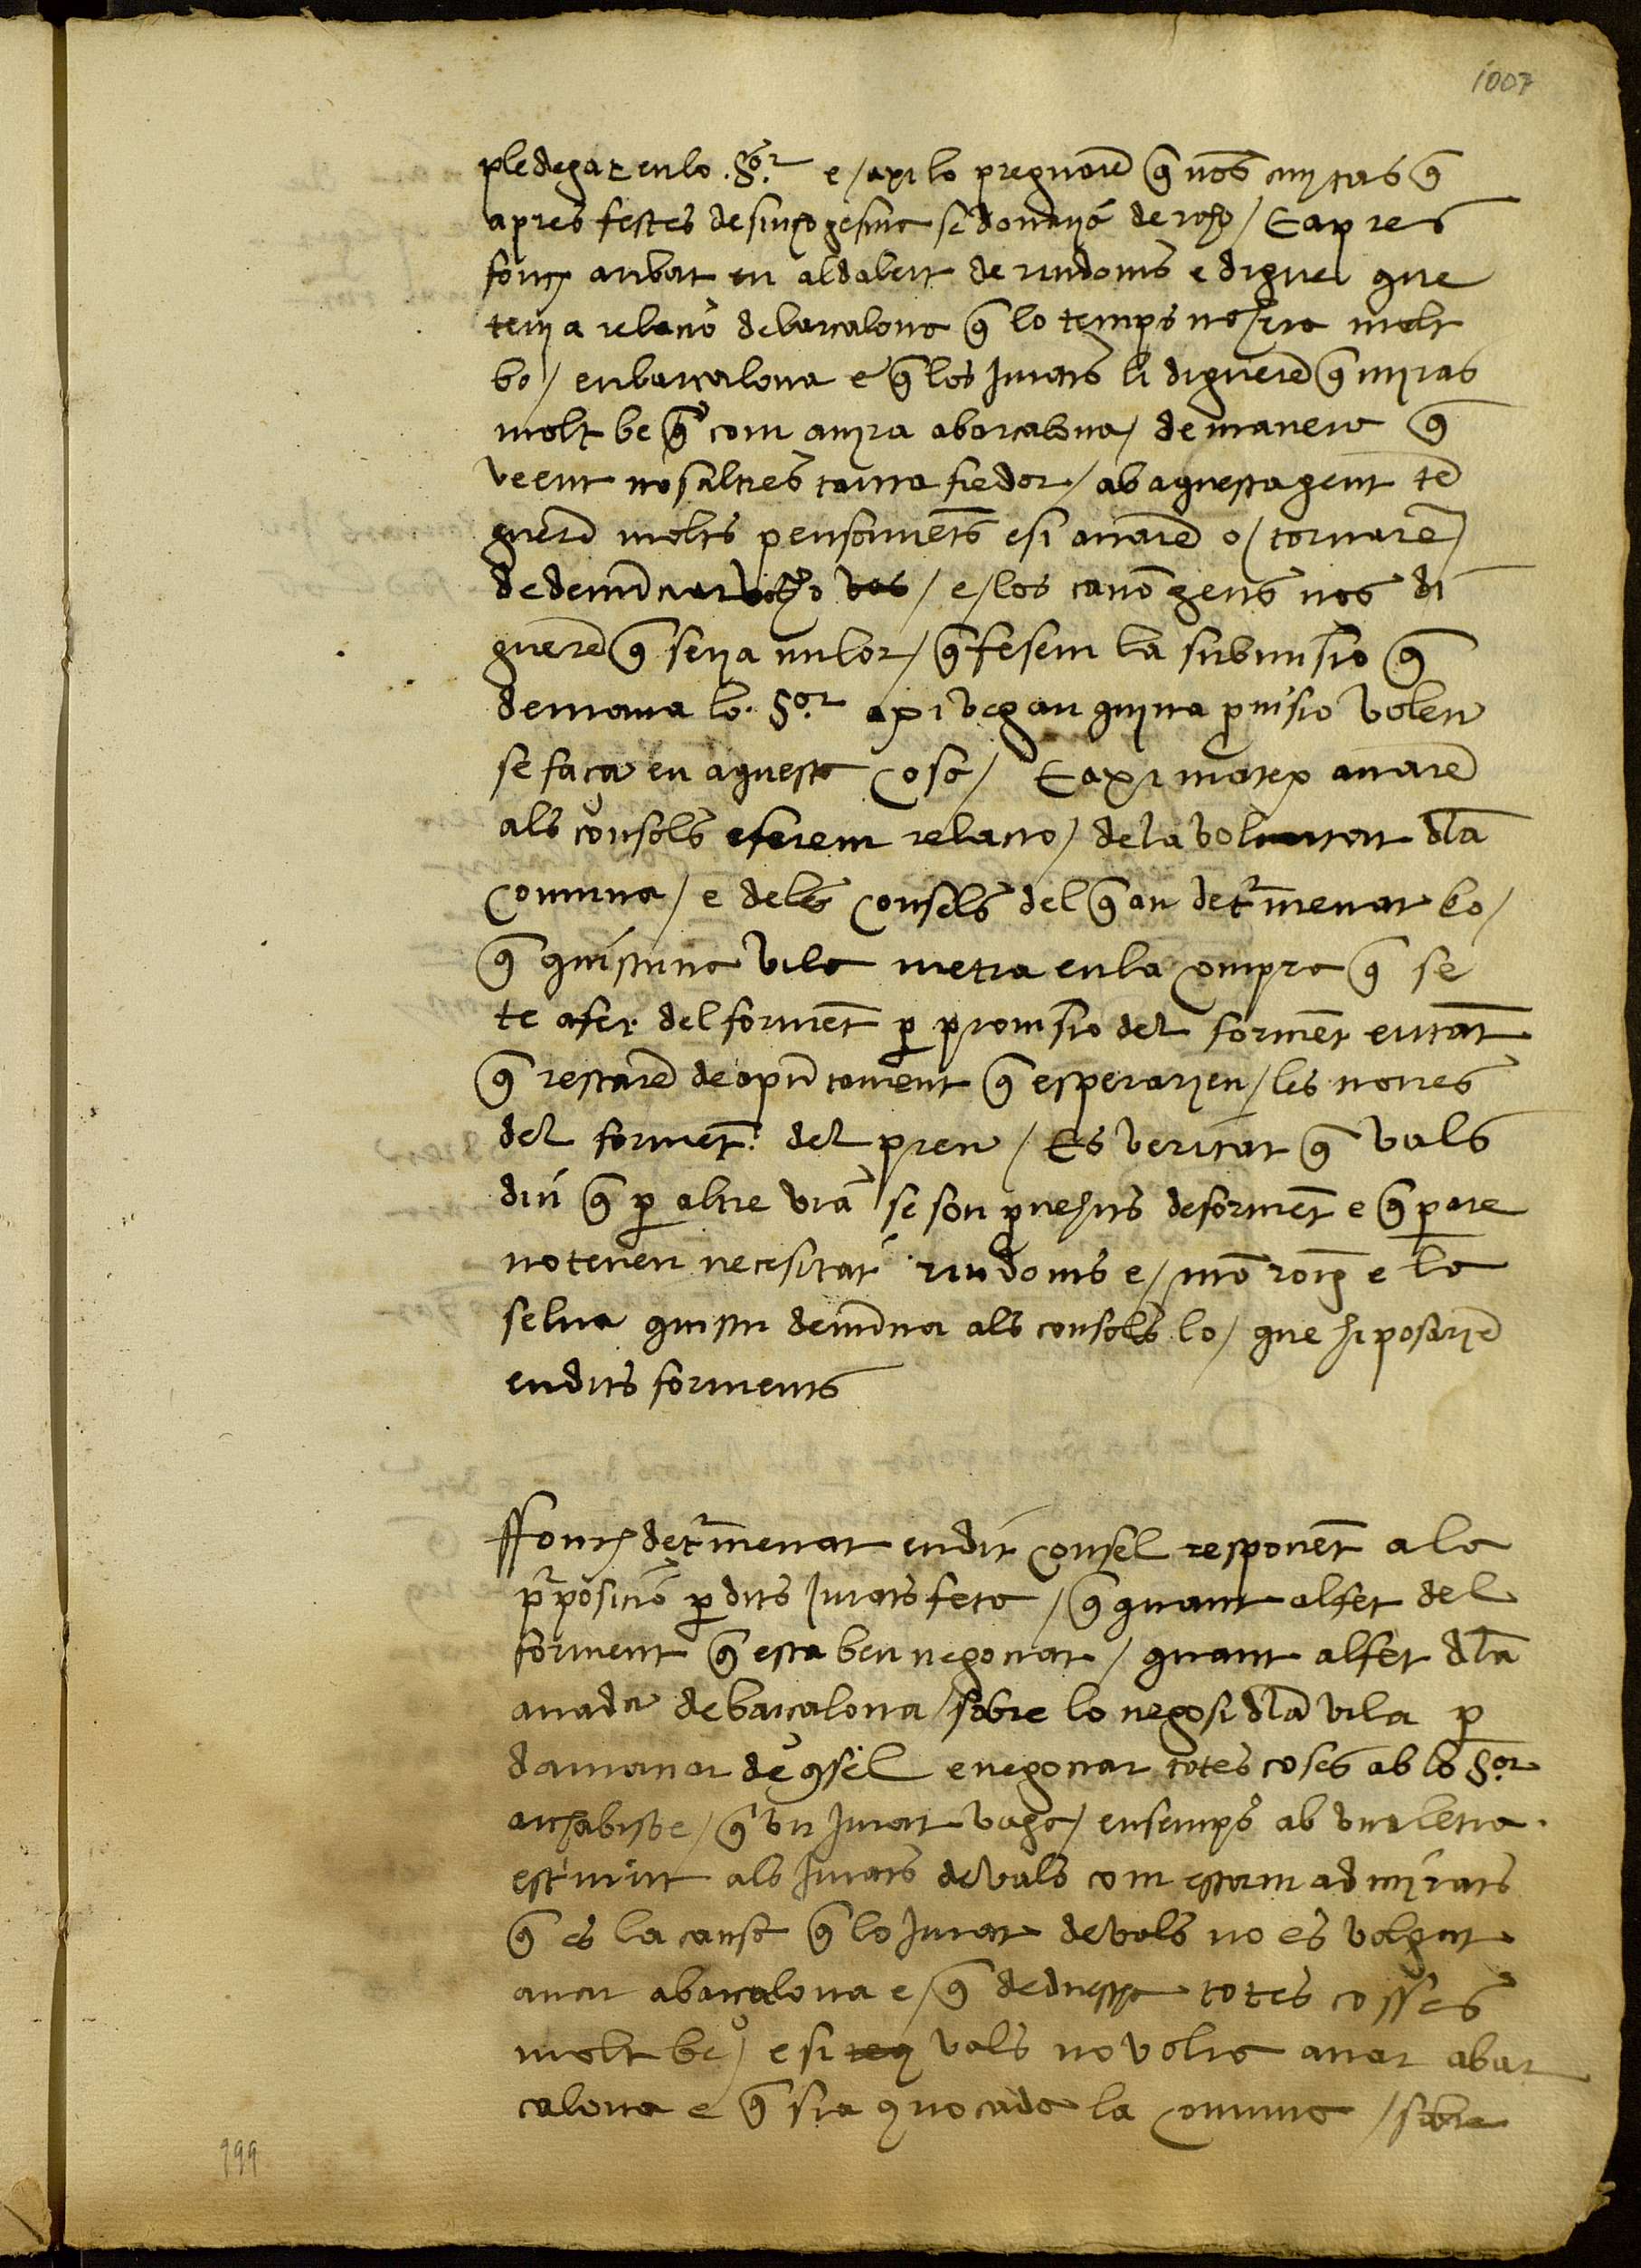 1007
pledegat en lo .Sor. e / axi lo pregnarē q̄ nos q̄
apres festes de se donaria de / E apres
fonch aribat en aldabert de riudoms e digue que
tenia relacio de barcalona q̄ lo temps molt
bo / en barcalona e q̄ los Jurats li diguerē q̄ miras
molt be q̄ com anira a barcalona / de manera q̄
veent nosaltres tanta fredor / ab aquesta gent tē
guerē molts pensamēts e si anarē o / tornarē /
de denūciar / e / los canōgens nos di
guerē q̄ seria millor / q̄ fesem la submisio q̄
demana lo .Sor. axi vegau quina ꝓuisio voleu
se faça en aquesta cosa / E axi matex anarē
als consols e ferem relacio / de la voluntat dla
comuna / e dels consels del q̄ an determenat bo /
q̄ quiscuna vila metra en la compra q̄ se
te a fer del formēt ꝑ promisio del formēt en tāt
q̄ restarē de apūtament q̄ esperarien / les noues
del formēt. del preu / Es veritat q̄ vals
diu q̄ ꝑ altre via se son ꝓuehits de formēt e q̄ ꝑ are
no tenen necesitat riudoms e / mō roig e la
selua quiscu denūcia als consols lo / que hi posariē
en dits forments
Ffonch determenat en dit consel responēt a la
ꝓposicio ꝑ dits Jurats feta / q̄ quant al fet del
forment q̄ esta ben negociat / quant al fet dla
anada de barcalona / sobre lo negosi dla vila ꝑ
damanar de ꝯsel e negociar totes coses ab lo Sor.
archabisbe / q̄ vn Jurat vaga / ensemps ab vna letra.
als Jurats de vals com estam admirats
q̄ es la causa q̄ lo Jurat de vals no es volgut
anar a barcalona e / q̄ deduesqua totes cosses
molt be / e si vals no volia anar a bar
calona e q̄ sia ꝯuocada la comuna / sobre
999